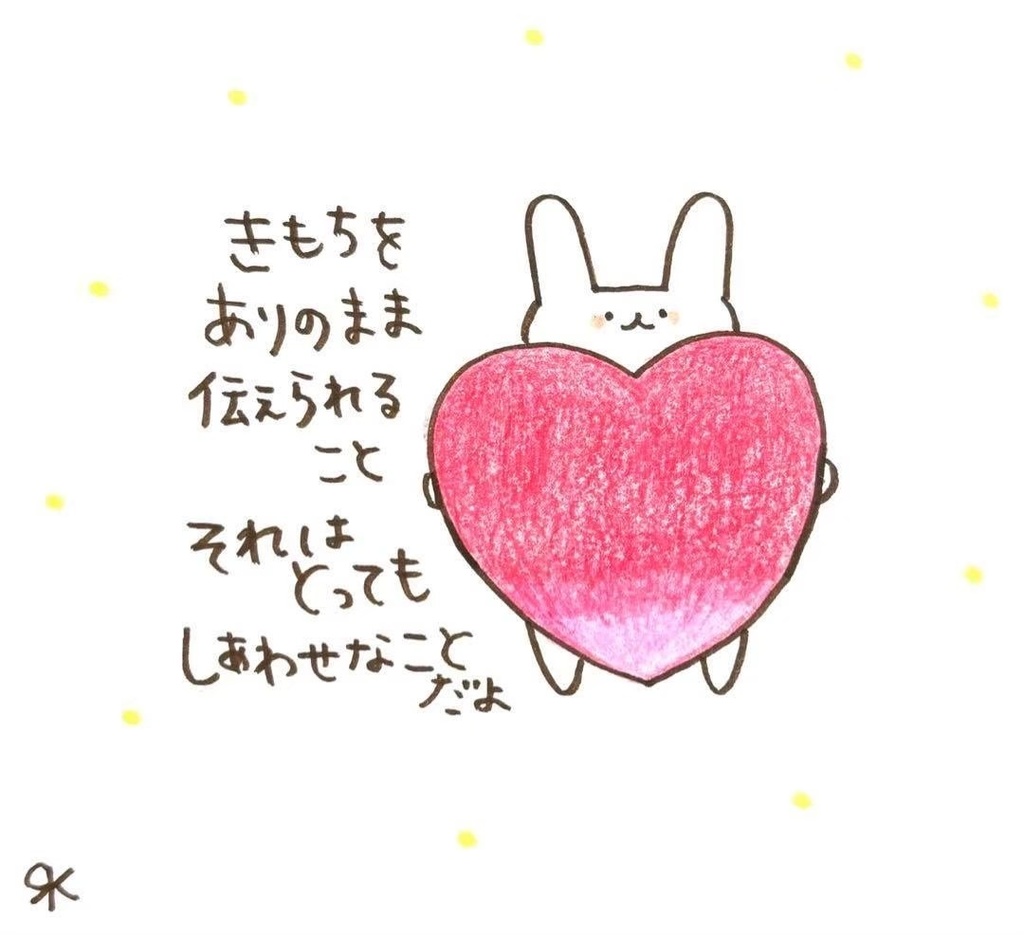 きもちを
ありのまま
伝えられる
こと
それは
とっても
しあわせなこと
だよ